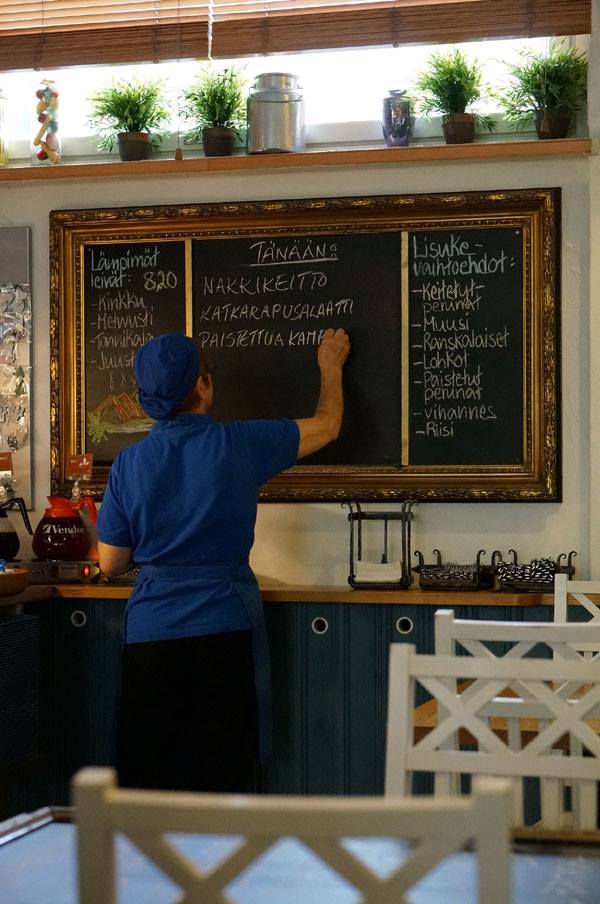 Lämpimät
leivät: 820
-Kinkku
-Metwusti
-Tonnikala
-Juusto
TÄNÄÄN:
NAKKIKEITTO
KATKARAPUSALAATTI
PAISTETTUA KAMP
Lisuke-
vaihtoehdot:
-Keitetut-
perunat
-Muusi
-Ranskalaiset
-Lohkot
-Paistetut
perunat
-vihannes
-Riisi
Vendor